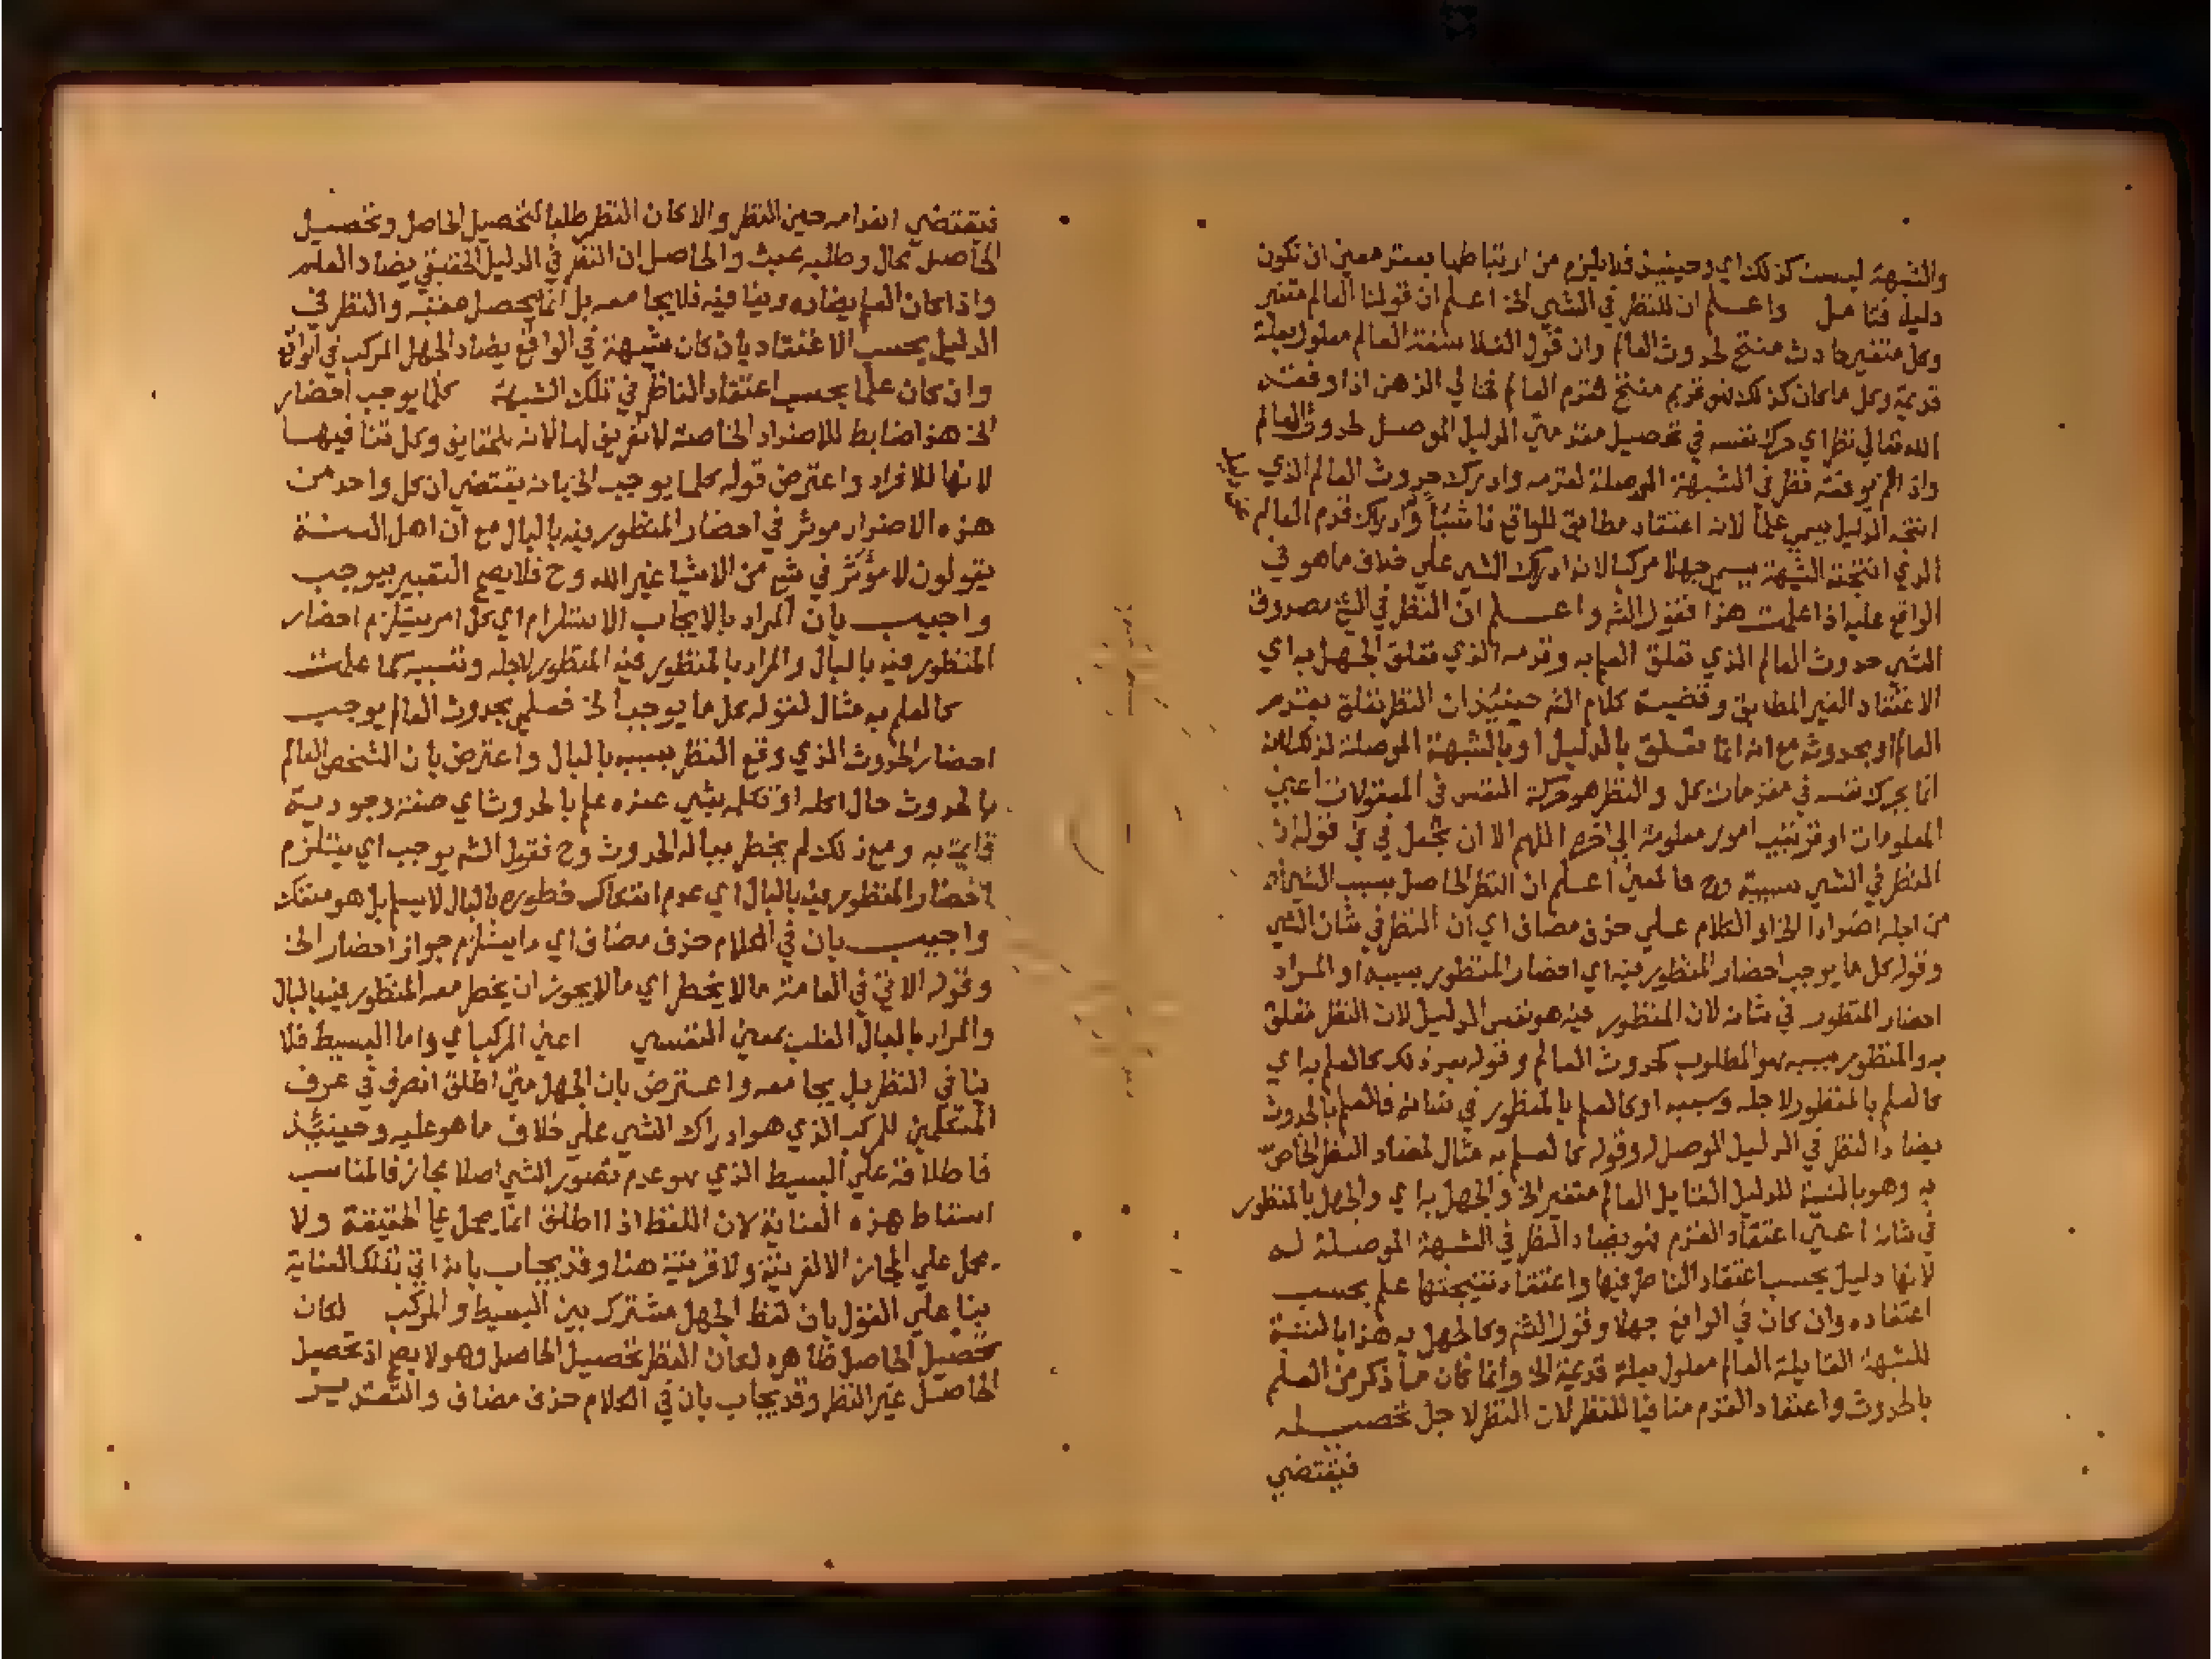 والشبهة ليست كذلك اي وحينيذ فلا يلزم من ارتباطها بمعتر معين ان تكون
دليلا فتامل واعلم ان للنظر في الشي الخ اعلم ان قولنا العالم متغير
وكل متغير حادث منتج لحدوث العالم وان قول الفلاسفة العالم معلول بعلة
قديمة وكل ما كان كذلك فهو قديم منتج لقدم العالم فما في الذهن اذا وفقه
الله تعالى نظر اي حرك نفسه في تحصيل مقدمتي الدليل الموصل لحدوث العالم
واذا لم يوفقه نظر في الشبهة الموصلة لقدمه وادرك حدوث العالم الذي
انتجه الدليل يسمى علما لانه اعتقاد مطابق للواقع ناشئا وادراك قدم العالم
عن دليل
الذي انتجته الشبهة يسمى جهلا مركبا لانه ادرك الشي علي خلاف ما هو في
الواقع عليه اذا علمت هذا فقول الشه واعلم ان النظر في الشئ مصدوق
الشي حدوث العالم الذي تعلق العلم به وقدمه الذي تعلق الجهل به اي
الاعتقاد الغير المطابق وقضية كلام الشه حينيذ ان النظر تعلق بقدم
العالم او بحدوثه مع انه انما يتعلق بالدليل او بالشبهة الموصلة لذلك لانه
انما يحرك نفسه في مقدمات كل والنظر هو حركة النفس في المعقولات اعني
المعلومات او ترتيب امور معلومة الى اخره اللهم الا ان تجعل في في قوله ان
النظر في الشي سببية وح فالمعنى اعلم ان النظر الحاصل بسبب الشي اي
من اجله اضدادا الخ او الكلام علي حذف مضاف اي ان النظر في شان الشي
وقوله كل ما يوجب احضار المنظور فيه اي احضار المنظور بسببه او المراد
احضار المنظور في شانه لان المنظور فيه هو نفس الدليل لان النظر متعلق
به والمنظور بسببه هو المطلوب كحدوث العالم وقوله بعد ذلك كالعلم به اي
كالعلم بالمنظور لاجله وسببه او كالعلم بالمنظور في شانه فالعلم بالحدوث
يضاد النظر في الدليل الموصل له وقوله كالعلم به مثال لمضاد النظر الخاص
به وهو بالنسبة للدليل القايل العالم متغير الخ والجهل به اي والجهل بالمنظور
في شانه اعني اعتقاد القدم فهو يضاد النظر في الشبهة الموصلة له
لانها دليل بحسب اعتقاد الناظر فيها واعتقاد نتيجتها علم بحسب
اعتقاده وان كان في الواقع جهلا وقول الشه وكالجهل به هذا بالنسبة
للشبهة القايلة العالم معلول بعلة قديمة الخ وانما كان ما ذكر من العلم
بالحدوث واعتقاد القدم منافيا للنظر لان النظر لاجل تحصيله
فيقتضي
فيقتضي انعدامه حين النظر والا كان النظر طلبا لتحصيل الحاصل وتحصيل
الحاصل محال وطلبه عبث والحاصل ان النظر في الدليل الحقيقي يضاد العلم
واذا كان العلم يضاده وينافيه فلا يجامعه بل انما يحصل عقبه والنظر في
الدليل بحسب الاعتقاد بان كان شبهة في الواقع يضاد الجهل المركب في الواقع
وان كان علما بحسب اعتقاد الناظر في تلك الشبهة كلما يوجب احضار
الخ هذا ضابط للاضداد الخاصة لا تعريف لها لانه للحقايق وكل تنافيها
لانها للافراد واعترض قوله كلما يوجب الخ بانه يقتضي ان كل واحد من
هذه الاضداد موثر في احضار المنظور فيه بالبال مع ان اهل السنة
يقولون لا مؤثر في شئ من الاشيا غير الله وح فلا يصح التعبير بيوجب
واجيب بان المراد بالايجاب الاستلزام اي كل امر يستلزم احضار
المنظور فيه بالبال والمراد بالمنظور فيه المنظور لاجله وبسببه كما علمت
كالعلم به مثال لقوله كل ما يوجب الخ فعلمي بحدوث العالم يوجب
احضار الحدوث الذي وقع النظر بسببه بالبال واعترض بان الشخص العالم
بالحدوث حال اكله او تكلمه بشي عنده علم بالحدوث اي صفة وجودية
قايمة به ومع ذلك لم يخطر بباله الحدوث وح فقول الشه يوجب اي يستلزم
احضار المنظور فيه بالبال اي عدم انفكاك خطوره بالبال لا يسلم بل هو منفك
واجيب بان في الكلام حذف مضاف اي ما يستلزم جواز احضار الخ
وقوله الاتي في العامة ما لا يخطر اي ما لا يجوز ان يخطر معه المنظور فيه بالبال
والمراد بالبال القلب بمعنى النفس اعني المركب اي واما البسيط فلا
ينافي النظر بل يجامعه واعترض بان الجهل متى اطلق انصرف في عرف
المتكلمين للمركب الذي هو ادراك الشي علي خلاف ما هو عليه وحينيذ
فاطلاقه علي البسيط الذي هو عدم تصور الشي اصلا مجاز فالمناسب
اسقاط هذه العناية لان اللفظ اذا اطلق انما يحمل علي الحقيقة ولا
يحمل علي المجاز الا لقرينة ولا قرينة هنا وقد يجاب بانه اتي بتلك العناية
بنا علي القول بان لفظ الجهل مشترك بين البسيط والمركب لكان
تحصيل الحاصل ظاهره لكان النظر تحصيل الحاصل وهو لا يصح اذ تحصيل
الحاصل غير النظر وقد يجاب بان في الكلام حذف مضاف والتقدير